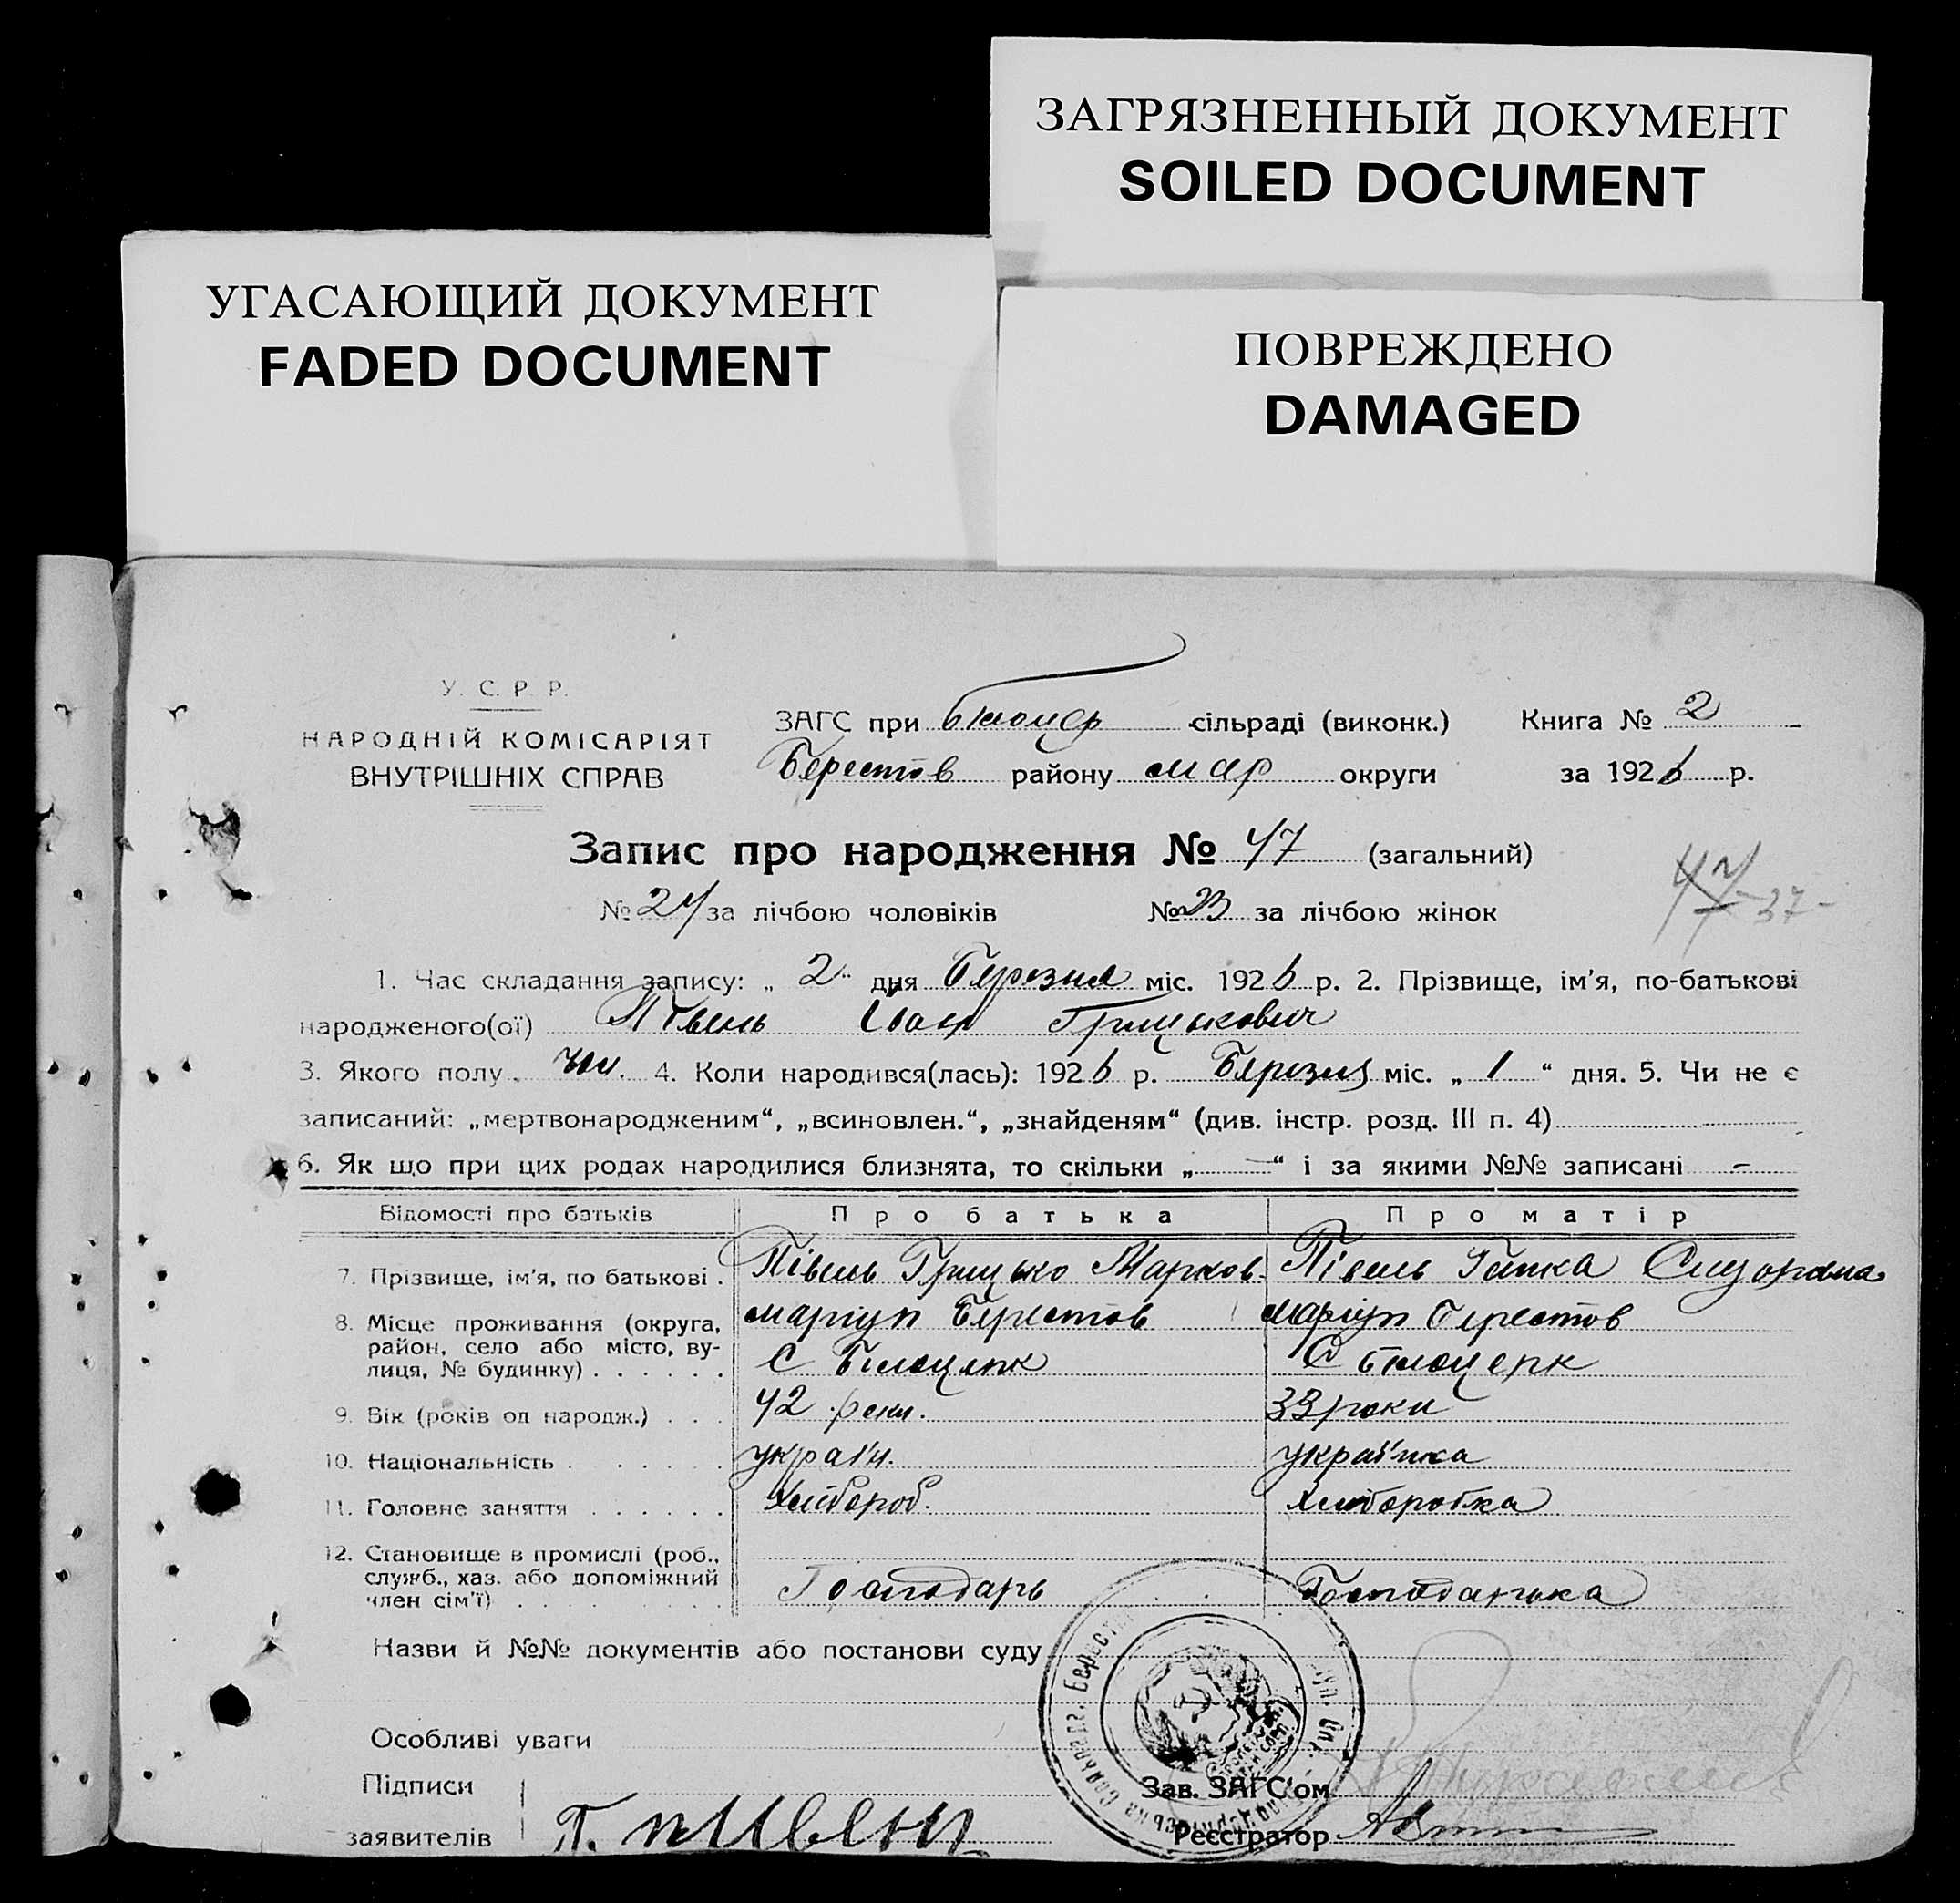 ЗАГРЯЗНЕННЫЙ ДОКУМЕНТ
SOILED DOCUMENT
УГАСАЮЩИЙ ДОКУМЕНТ
FADED DOCUMENT
ПОВРЕЖДЕНО
DAMAGED
У. С. Р. Р.
НАРОДНІЙ КОМІСАРІЯТ
ВНУТРІШНІХ СПРАВ
ЗАГС при Білоцер сільраді (виконк.) Книга № 2
Берестов району мар округи за 1926 р.
Запис про народження № 47 (загальний)
№ 24 за лічбою чоловіків № 23 за лічбою жінок
47 37-
1. Час складання запису: „ 2 " дня Березня міс. 1926 р. 2. Прізвище, ім'я, по-батькові
народженого(ої) Півень Іван Грицькович
3. Якого полу чол. 4. Коли народився(лась): 1926 р. Березня міс. „ 1 “ дня. 5. Чи не є
записаний: „мертвонародженим“, „всиновлен.“, „знайденям“ (див. інстр. розд. III п. 4)
6. Як що при цих родах народилися близнята, то скільки „ — “ і за якими №№ записані –
Відомості про батьків Про батька Про матір
7. Прізвище, ім'я, по батькові . Півень Грицько Марков. Півень Гапка Сидоровна
8. Місце проживання (округа, район, село або місто, вулиця, № будинку) . . . . . . маріуп Берестов маріуп Берестов
С Білоцерк С Білоцерк
9. Вік (років од народж.) . . . 42 роки. 33 роки
10. Національність . . . . . . україн. українка
11. Головне заняття . . . . . . Хлібороб. хліборобка
12. Становище в промислі (роб., служб., хаз. або допоміжний член сім'ї) . . . . . . Господарь Господарька
Назви й №№ документів або постанови суду
Особливі уваги
Підписи
заявителів Г. пивень
Зав. ЗАГС'ом
Реєстратор